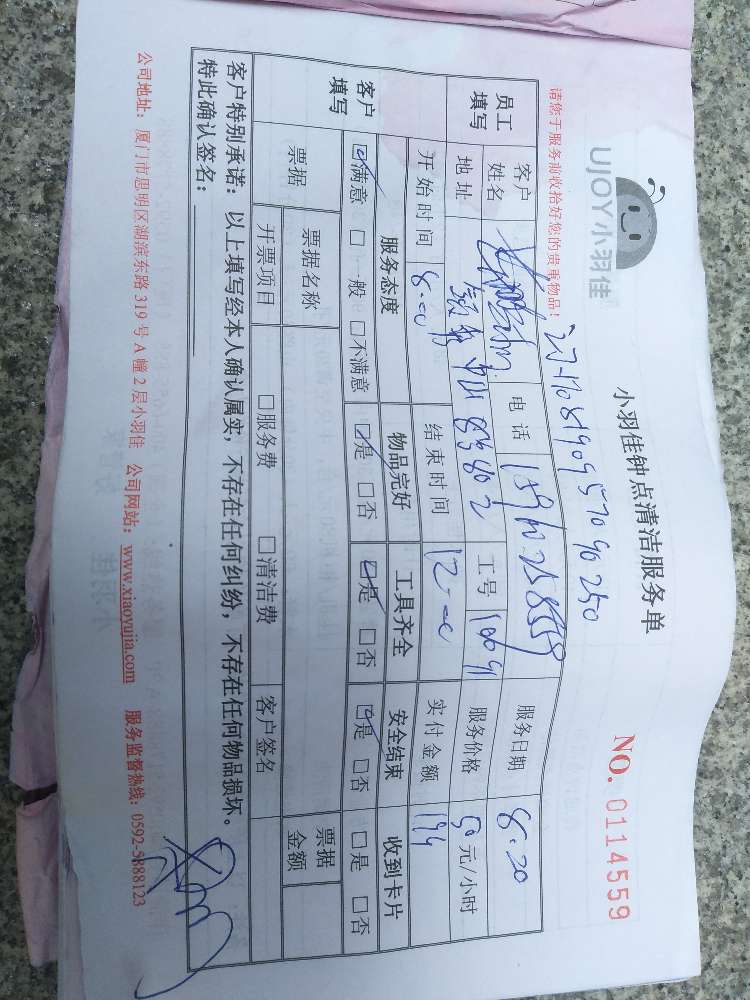 UJOY小羽佳
小羽佳钟点清洁服务单
NO. 0114559
请您于服务前收拾好您的贵重物品!
员工填写 客户姓名 电话 服务日期 8.20
地址 工号 服务价格 50元/小时
开始时间 8:00 结束时间 12:00 实付金额
客户填写 服务态度 物品完好 工具齐全 安全结束 收到卡片
☑满意 □一般 □不满意 ☑是 □否 ☑是 □否 ☑是 □否 □是 □否
票据 票据名称 票据金额
开票项目 □服务费 □清洁费 客户签名
客户特别承诺:以上填写经本人确认属实,不存在任何纠纷,不存在任何物品损坏。
特此确认签名:
公司地址:厦门市思明区湖滨东路319号A幢2层小羽佳 公司网站:www.xiaoyujia.com 服务监督热线:0592-5888123